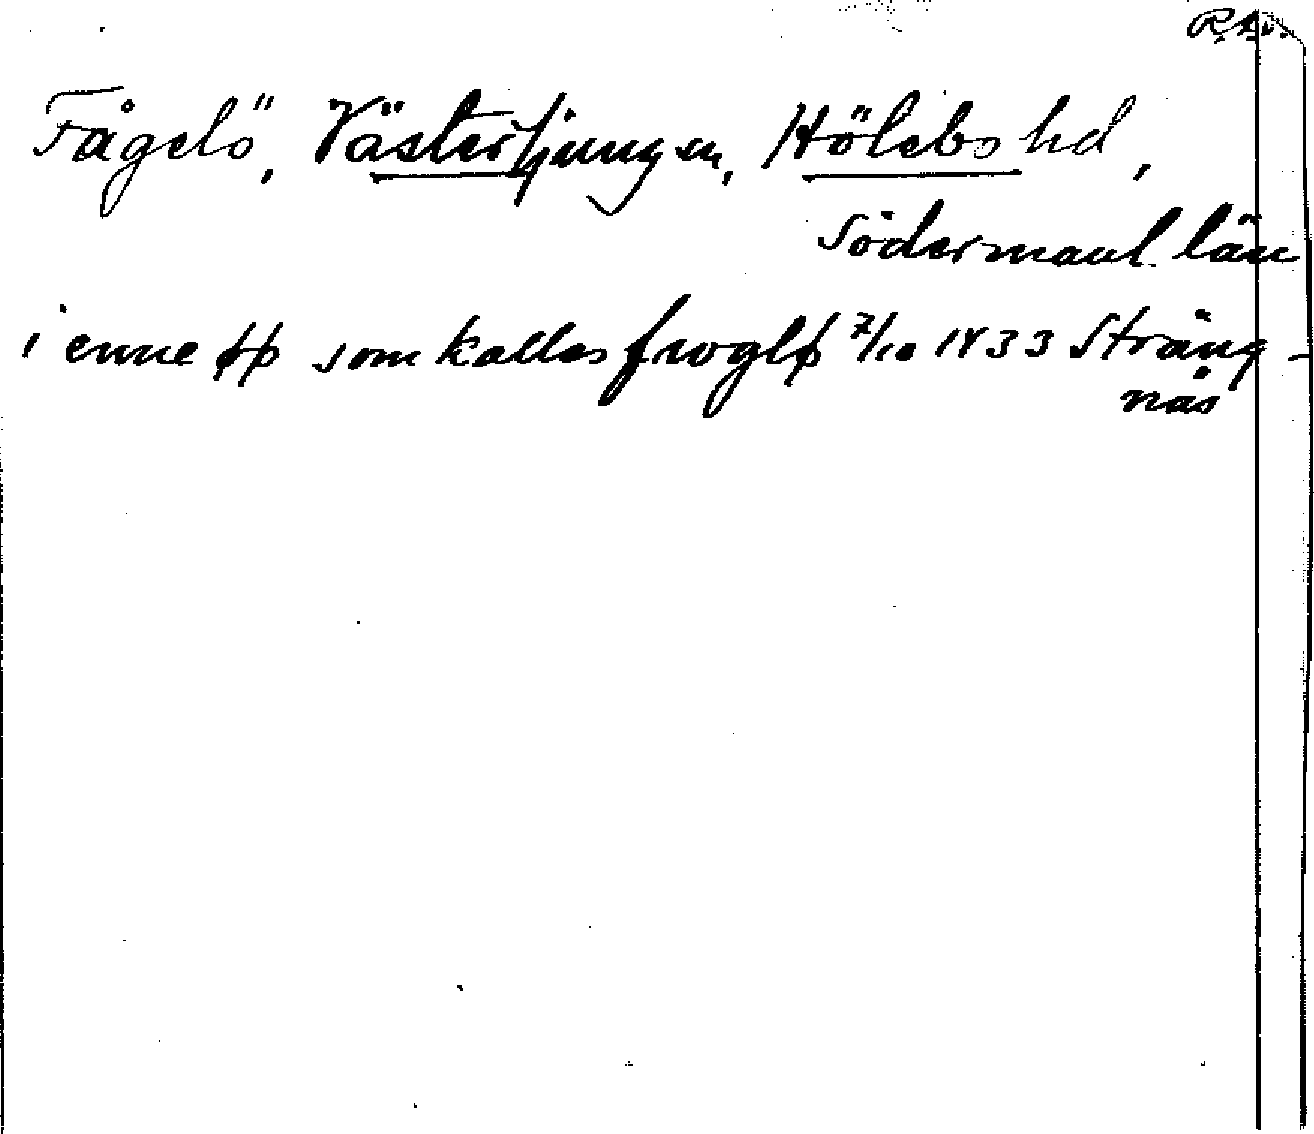 Fågelö, Västerljung sn, Hölebo hd,
Södermanl. län
i enne øø som kallas froglø 7/10 1433 Sträng-
näs